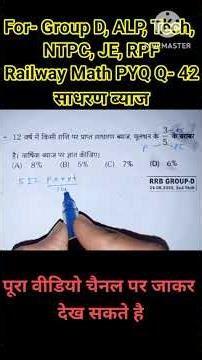 For- Group D, ALP, Tech,
NTPC, JE, RPF
Railway Math PYQ Q- 42
साधरण ब्याज
- 12 वर्ष में किसी राशि पर प्राप्त साधारण ब्याज, मूलधन के 3/5 के बराबर
है। वार्षिक ब्याज दर ज्ञात कीजिए।
(A) 8% (B) 5% (C) 7% (D) 6%
RRB GROUP-D
पूरा वीडियो चैनल पर जाकर
देख सकते है